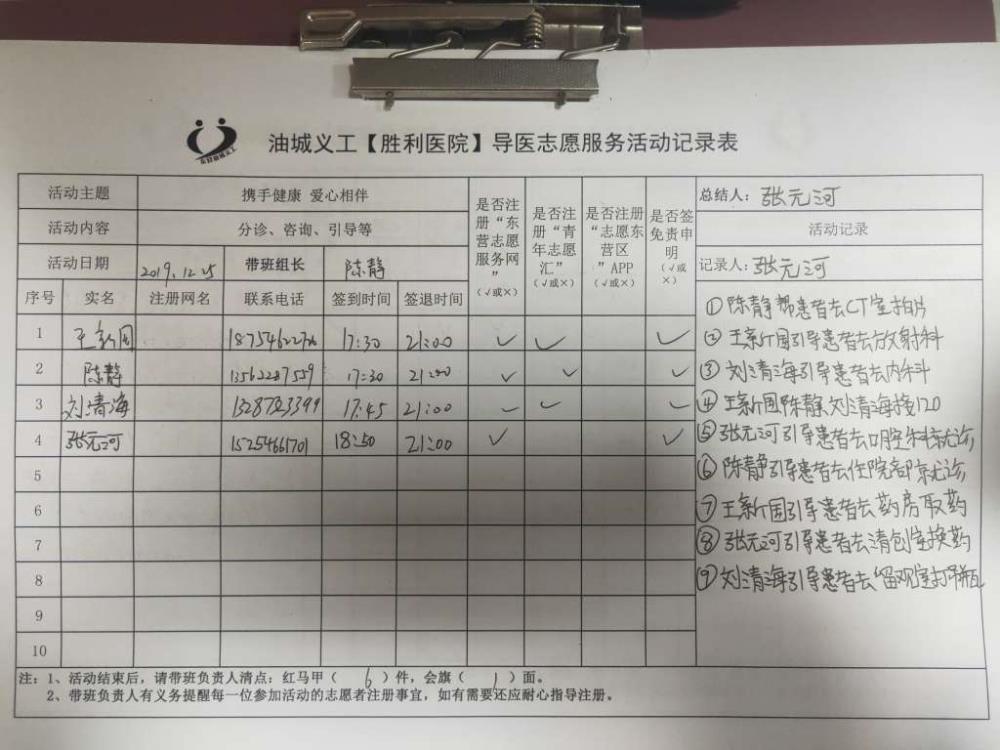 油城义工【胜利医院】导医志愿服务活动记录表
活动主题 携手健康 爱心相伴
活动内容 分诊、咨询、引导等
活动日期 2019.12.25 带班组长 陈静
是否注册“东营志愿服务网”（√或×）
是否注册“青年志愿汇”（√或×）
是否注册“志愿东营区”APP（√或×）
是否签免责申明（√或×）
总结人：张元河
活动记录
记录人：张元河
序号 实名 注册网名 联系电话 签到时间 签退时间
1 王新国 17:30 21:00 ✓ ✓ ✓
2 陈静 13562287559 17:30 21:00 ✓ ✓ ✓
3 刘清海 17:45 21:00 ✓ ✓ ✓
4 张元河 15254661701 18:50 21:00 ✓ ✓
5
6
7
8
9
10
①陈静帮患者去CT室拍片
②王新国引导患者去放射科
③刘清海引导患者去内科
④王新国陈静刘清海接120
⑤张元河引导患者去口腔科就诊
⑥陈静引导患者去住院部就诊
⑦王新国引导患者去药房取药
⑧张元河引导患者去清创室换药
⑨刘清海引导患者去留观室打吊瓶
注：1、活动结束后，请带班负责人清点：红马甲（ 6 ）件，会旗（ 1 ）面。
2、带班负责人有义务提醒每一位参加活动的志愿者注册事宜，如有需要还应耐心指导注册。